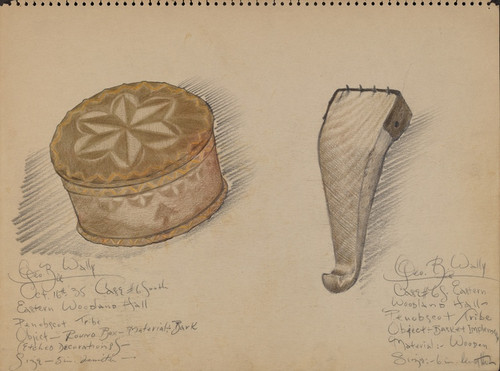 Geo. B. Wally
Oct 16th 35 Case #6 South
Eastern Woodland Hall
Penobscot Tribe
Object - Round Box - Material - Bark
(Etched Decorations) -
Size -
Geo. B. Wally
Case #6 S Eastern
Woodland Hall -
Penobscot Tribe
Object - Basket
Material - Wooden
Size: